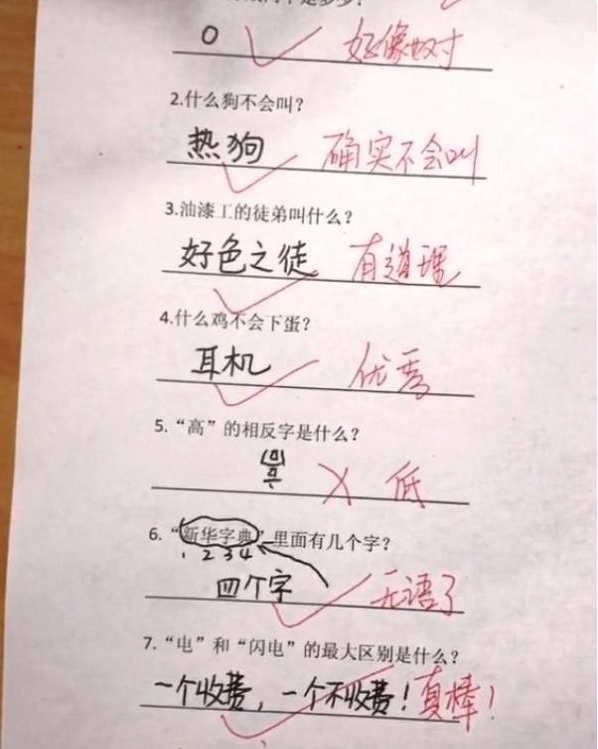 0 好像对
2.什么狗不会叫？
热狗 确实不会叫
3.油漆工的徒弟叫什么？
好色之徒 有道理
4.什么鸡不会下蛋？
耳机 优秀
5.“高”的相反字是什么？
低
6.“新华字典”里面有几个字？
1 2 3 4
四个字 无语了
7.“电”和“闪电”的最大区别是什么？
一个收费，一个不收费！真棒！